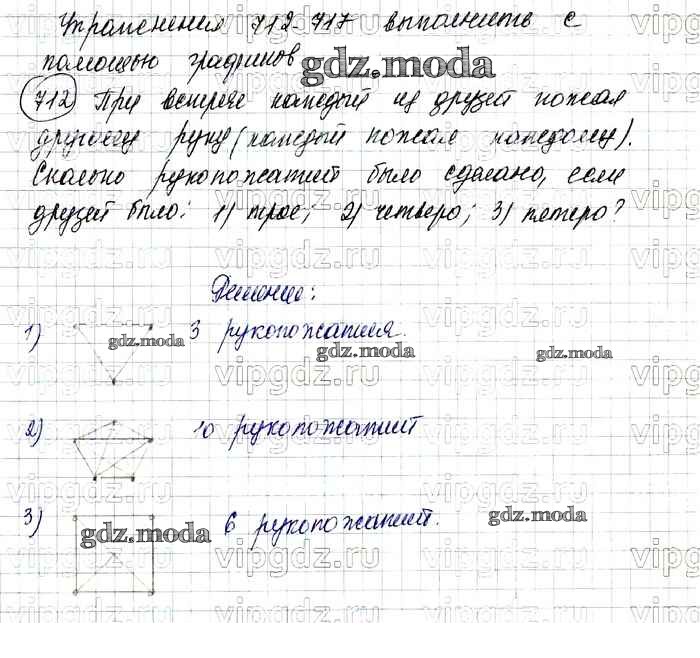 Упражнения 712-717 выполнить с
помощью графиков
gdz.moda
712 При встрече каждый из друзей пожал
другому руку (каждый пожал каждому).
Сколько рукопожатий было сделано, если
друзей было: 1) трое; 2) четверо; 3) пятеро?
vipgdz.ru
Решение:
1) gdz.moda 3 рукопожатия.
gdz.moda gdz.moda
2) 10 рукопожатий
3) gdz.moda 6 рукопожатий. gdz.moda
vipgdz.ru